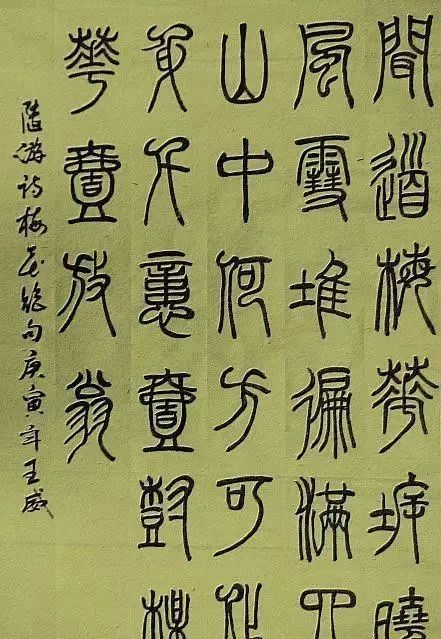 聞道梅華坼曉
風雪堆徧滿四
山中何方可化
身千意壹樹梅
華壹放翁
陸游詩梅花絕句庚寅年王威